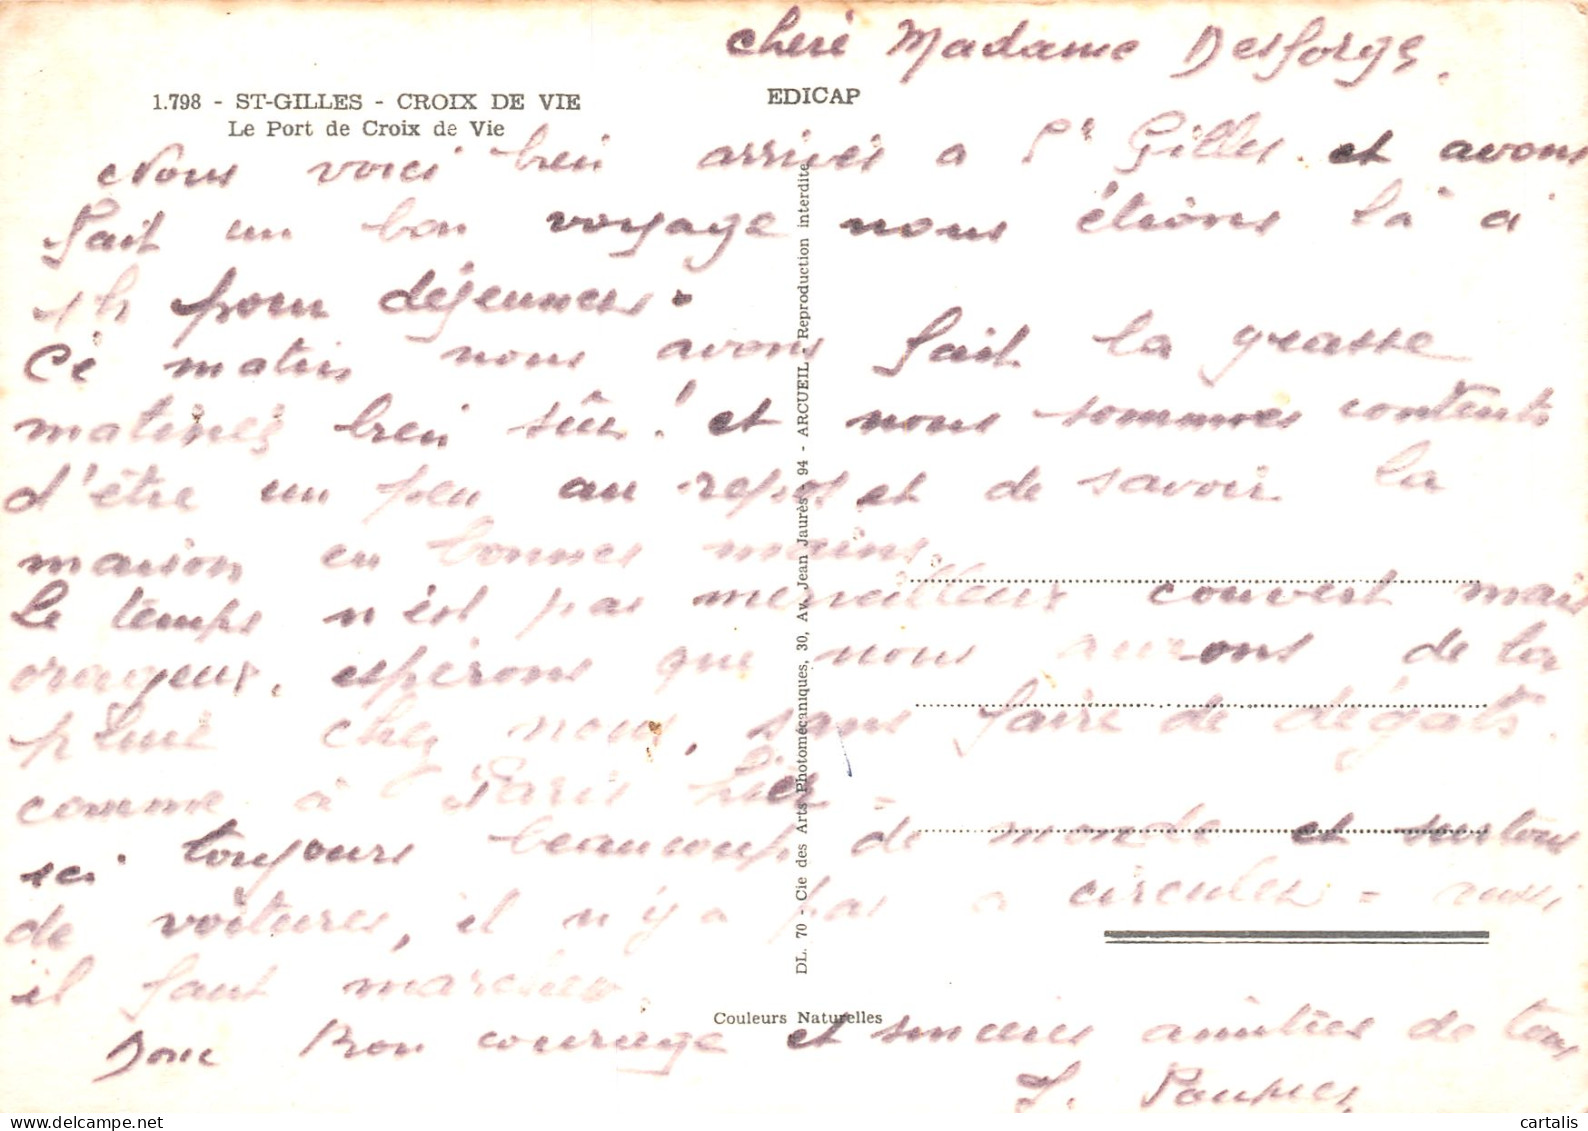 cheré Madame Desforges.
1.798 - ST-GILLES - CROIX DE VIE
Le Port de Croix de Vie
EDICAP
Nous voici bien arrivés a St Gilles. et avons
fait un bon voyage nous étions là à
1h pour déjeunner.
Ce matin nous avons fait la grasse
matinés bien sûr! et nous sommes contents
d'être un peu au repos et de savoir la
maison en bonnes mains.
Le temps n'est pas merveilleux couvert mais
orageux. espérons que nous aurons de la
pluie chez nous, sans faire de dégats.
comme à Paris hier -
ici toujours beaucoup de monde et surtout
de voitures, il n'y a pas a circuler - aussi
il faut marcher.
Donc Bon courage et sinceres amitiés de tous
DL. 70 - Cie des Arts Photomécaniques, 30, Av. Jean Jaurès - 94 - ARCUEIL Reproduction interdite
Couleurs Naturelles
cartalis.com